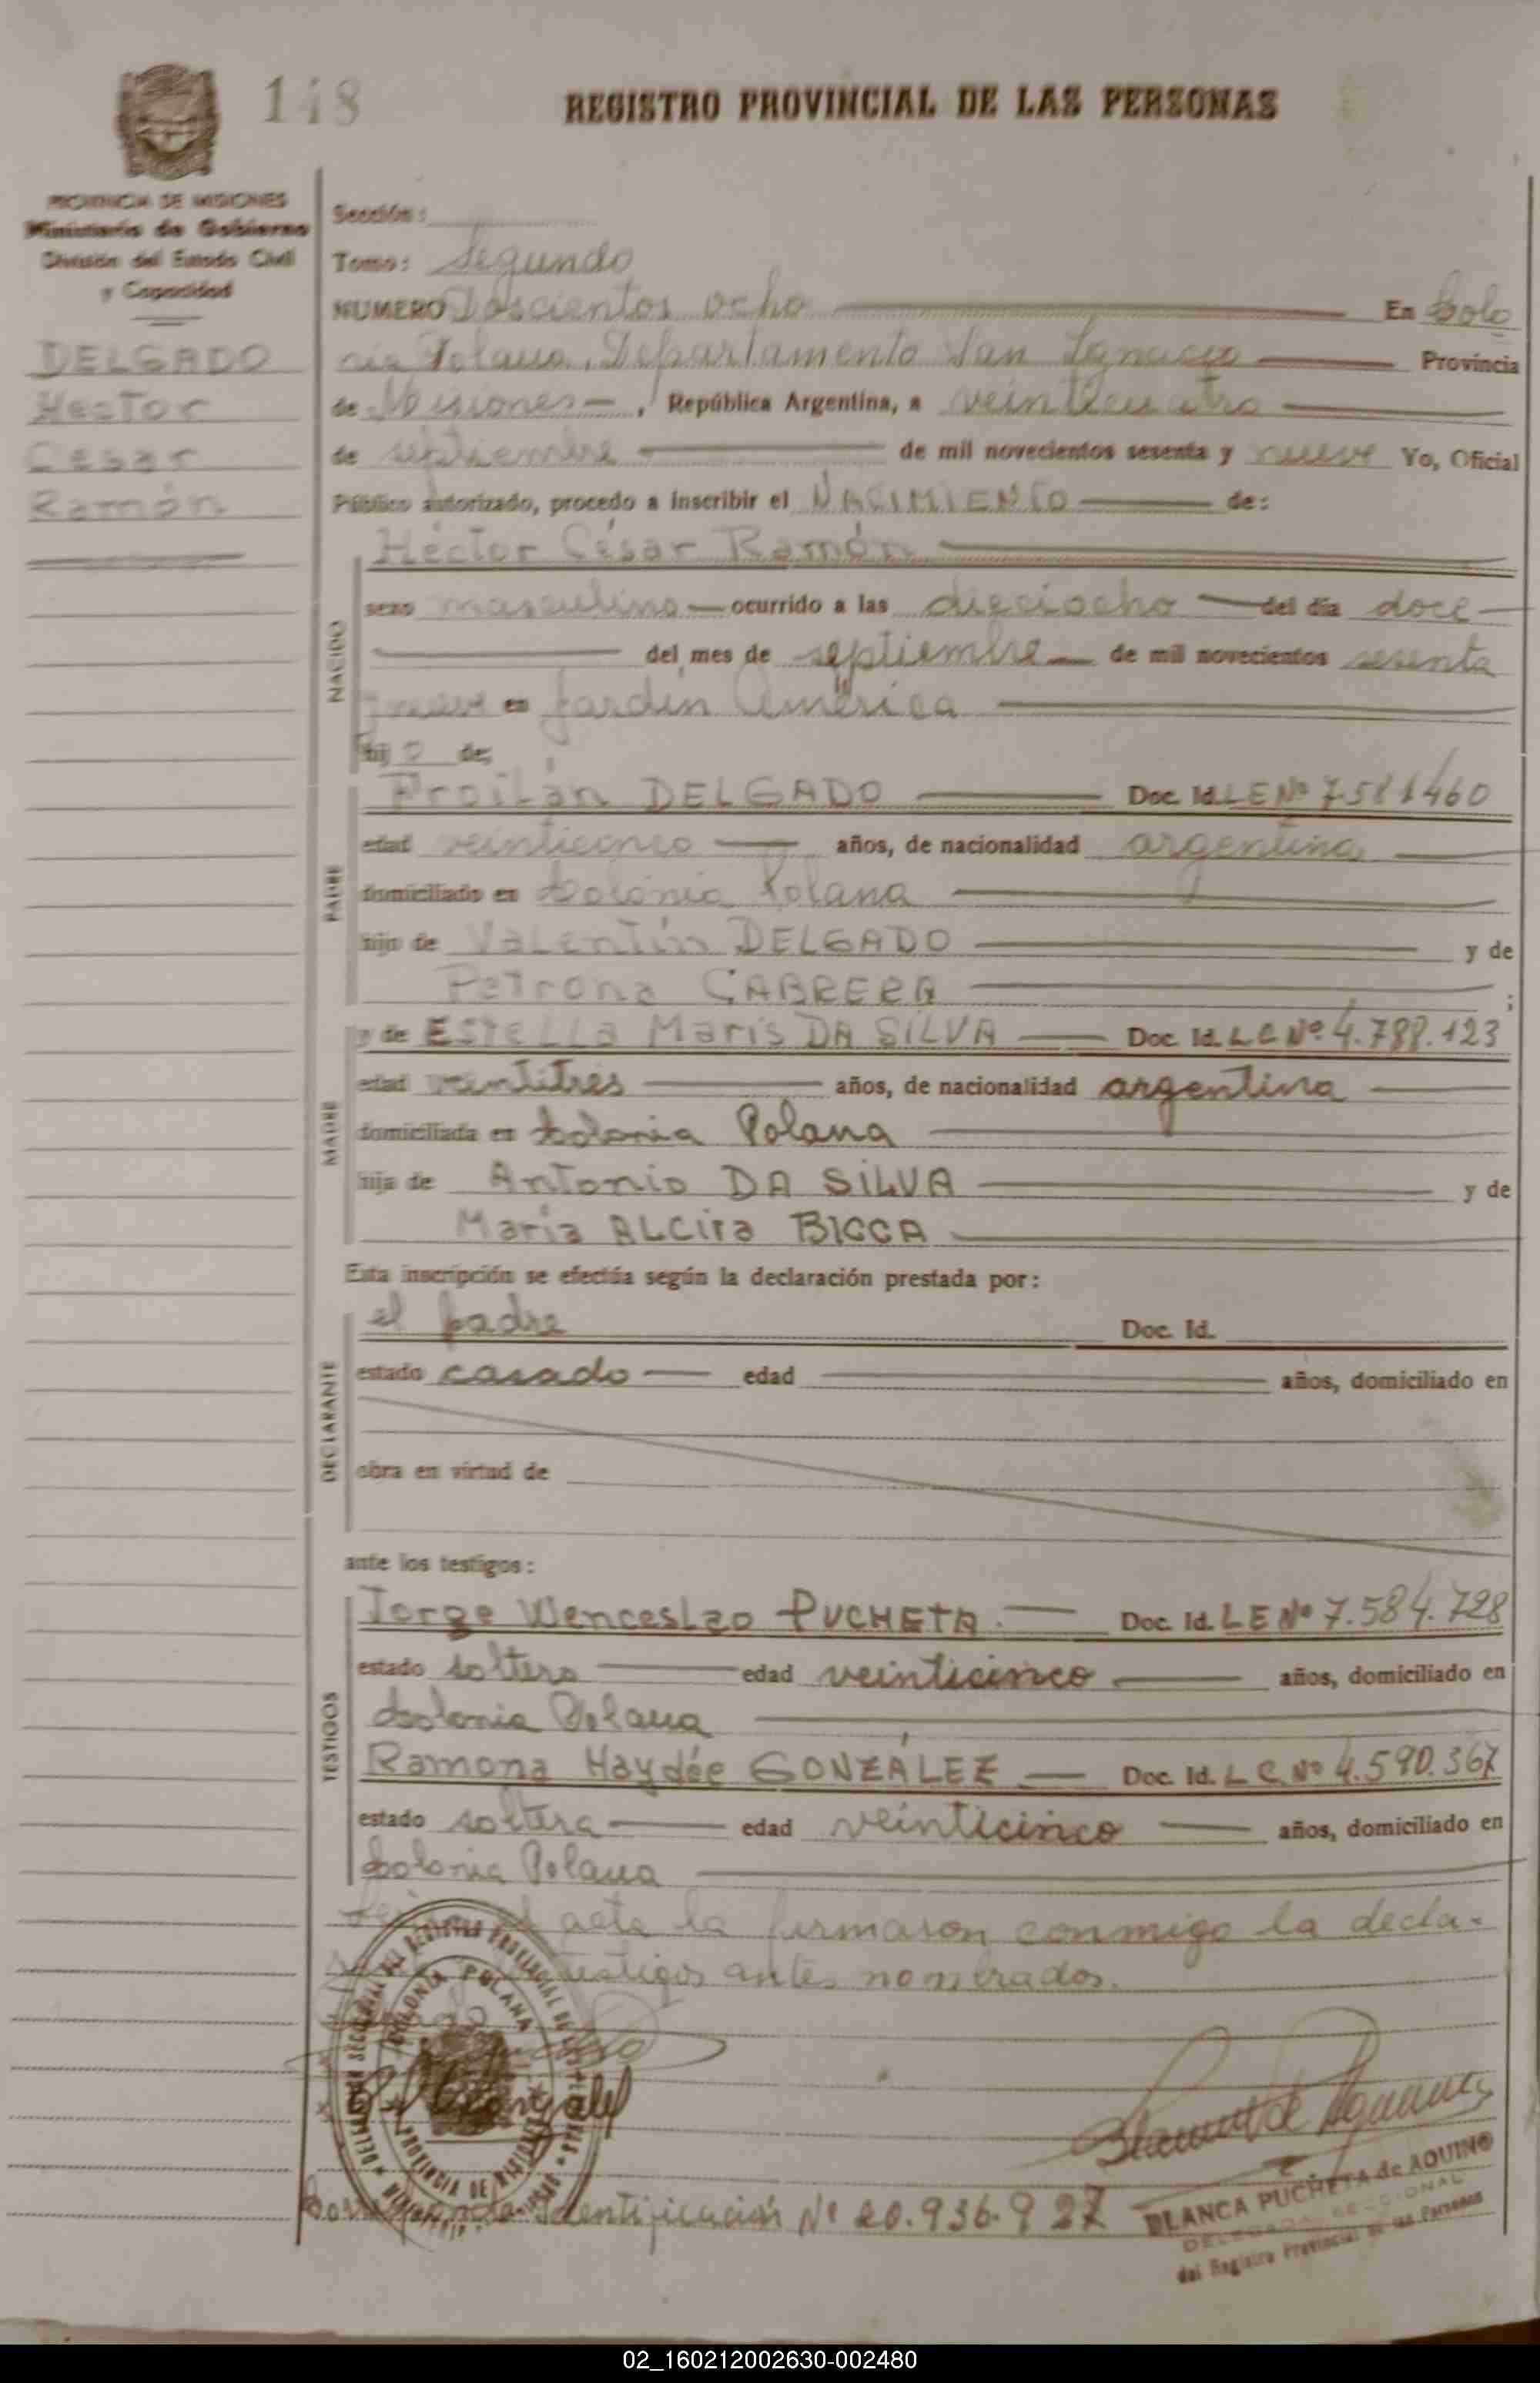 148
REGISTRO PROVINCIAL DE LAS PERSONAS
PROVINCIA DE MISIONES
Ministerio de Gobierno
División del Estado Civil
y Capacidad
DELGADO
Hector
Cesar
Ramón
Sección:
Tomo: Segundo
NUMERO Doscientos ocho En Colo
nia Polana, Departamento San Ignacio Provincia
de Misiones, República Argentina, a veinticuatro
de septiembre de mil novecientos sesenta y nueve Yo, Oficial
Público autorizado, procedo a inscribir el NACIMIENTO de:
NACIDO
Héctor César Ramón
sexo masculino ocurrido a las dieciocho del día doce
del mes de septiembre de mil novecientos sesenta
y nueve en Jardín América
hijo de;
PADRE
Froilán DELGADO Doc. Id. LE Nº 7.581460
edad veinticinco años, de nacionalidad argentina
domiciliado en Colonia Polana
hijo de Valentín DELGADO y de
Petrona CABRERA ;
MADRE
y de Estella Maris DA SILVA Doc. Id. L C Nº 4.788.123
edad veintitres años, de nacionalidad argentina
domiciliada en Colonia Polana
hija de Antonio DA SILVA y de
María ALcira BICCA
Esta inscripción se efectúa según la declaración prestada por:
DECLARANTE
el padre Doc. Id.
estado casado edad años, domiciliado en
obra en virtud de
ante los testigos:
TESTIGOS
Jorge Wenceslao PUCHETA. Doc. Id. L E Nº 7.584.728
estado soltero edad veinticinco años, domiciliado en
Colonia Polana
Ramona Haydée GONZÁLEZ Doc. Id. L C Nº 4.590.367
estado soltera edad veinticinco años, domiciliado en
Colonia Polana
acta la firmaron conmigo la decla-
testigos antes nombrados.
COLONIA POLANA
PROVINCIA DE MISIONES
BLANCA PUCHETA de AQUINO
DELEGADA SECCIONAL
del Registro Provincial de las Personas
Identificación Nº 20.936.927
02_160212002630-002480